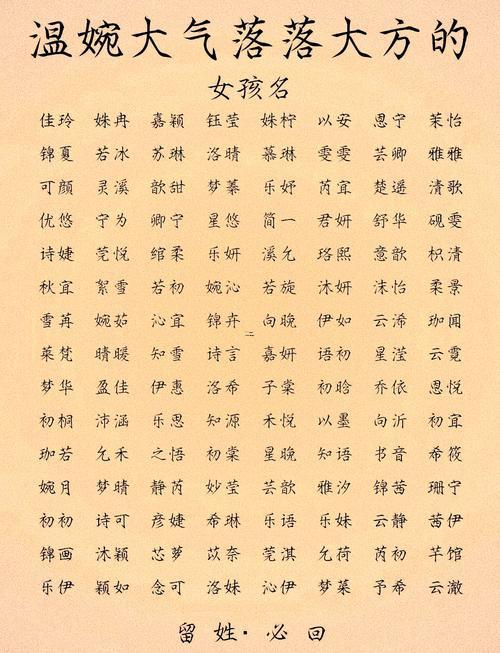 温婉大气落落大方的
女孩名
佳玲 姝冉 嘉颖 钰莹 姝柠 以安 恩宁 茉怡
锦夏 若冰 苏琳 洛晴 慕琳 雯雯 芸卿 雅雅
可颜 灵溪 歆甜 梦蓁 乐妤 芮宜 楚遥 清歌
优悠 宁为 卿宁 星悠 简一 君妍 舒华 砚雯
诗婕 莞悦 绾柔 乐妍 溪允 珞熙 意歆 枳清
秋宜 絮雪 若初 婉沁 若旋 沐妍 沫怡 柔景
雪苒 婉茹 沁宜 锦卉 向晚 伊如 云浠 珈闻
莱梵 晴暖 知雪 诗言 嘉妍 语初 星滢 云霓
梦华 盈佳 伊惠 洛希 子棠 初晗 乔依 思悦
初桐 沛涵 乐思 知源 禾悦 以墨 向沂 初宜
珈若 允禾 之悟 初棠 星晚 知语 书音 希筱
婉月 梦晴 静芮 妙莹 芸歆 雅汐 锦茜 珊宁
初初 诗可 彦婕 希琳 乐语 乐妹 云静 茜伊
锦画 沐颖 芯萝 苡奈 莞淇 允荷 芮初 芊馆
乐伊 颖如 念可 洛妹 沁伊 梦菜 予希 云澈
留姓·必回